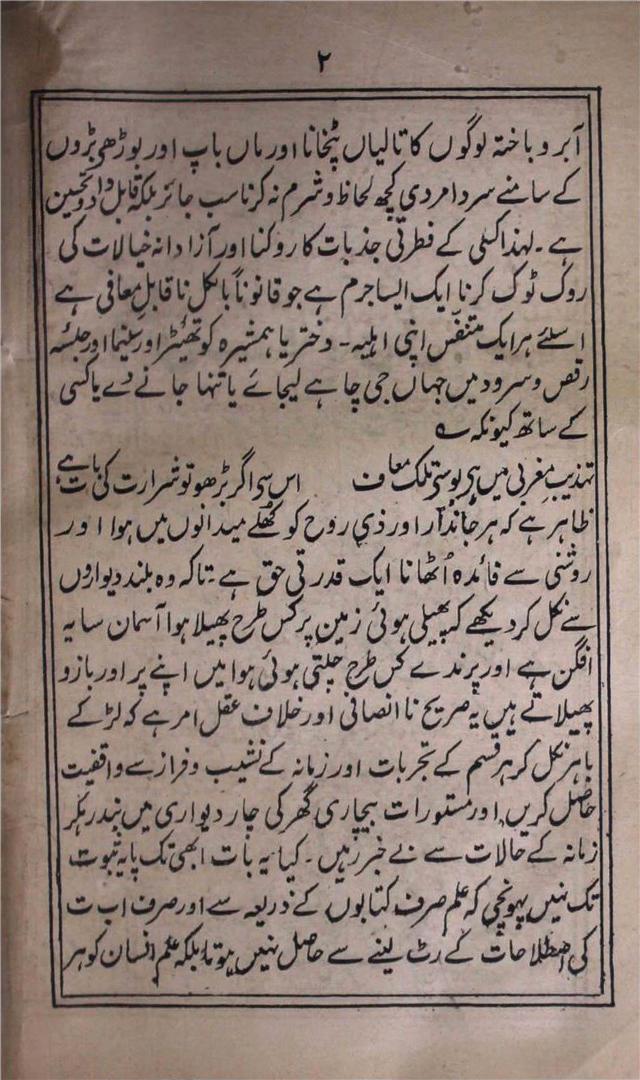 ۲
آبرو باختہ لوگوں کا تالیاں پٹخانا اور ماں باپ اور بوڑھی بڑوں
کے سامنے سردامردی کچھ لحاظ و شرم نہ کرنا سب جائز بلکہ قابل داد و تحسین
ہے ۔ لہذا کسی کے فطرتی جذبات کا روکنا اور آزادانہ خیالات کی
روک ٹوک کرنا ایک ایسا جرم ہے جو قانوناً بالکل ناقابل معافی ہے
اسلئے ہر ایک متنفس اپنی اہلیہ ۔ دختر یا ہمشیرہ کو تھیٹر اور سینما اور جلسئہ
رقص و سرود میں جہاں جی چاہے لیجائے یا تنہا جانے دے یا کسی
کے ساتھ کیونکہ ؎
تہذیب مغربی میں ہی بوسہ تلک معاف اس سی اگر بڑھو تو شرارت کی بات ہے
ظاہر ہے کہ ہر جاندار اور ذی روح کو کھلے میدانوں میں ہوا اور
روشنی سے فائدہ اُٹھانا ایک قدرتی حق ہے ۔ تاکہ وہ بلند دیواروں
سے نکل کر دیکھے کہ پھیلی ہوئی زمین پر کس طرح پھیلا ہوا آسمان سایہ
افگن ہے اور پرندے کس طرح چلتی ہوئی ہوا میں اپنے پر اور بازو
پھیلاتے ہیں یہ صریح نا انصافی اور خلاف عقل امر ہے کہ لڑکے
باہر نکل کر ہر قسم کے تجربات اور زمانہ کے نشیب و فراز سے واقفیت
حاصل کریں اور مستورات بیچاری گھر کی چار دیواری میں بند رہکر
زمانہ کے حالات سے بے خبر رہیں ۔ کیا یہ بات ابھی تک پایہ ثبوت
تک نہیں پہونچی کہ علم صرف کتابوں کے ذریعہ سے اور صرف اب ت
کی اصطلاحات کے رٹ لینے سے حاصل نہیں ہوتا بلکہ علم انسان کو ہر